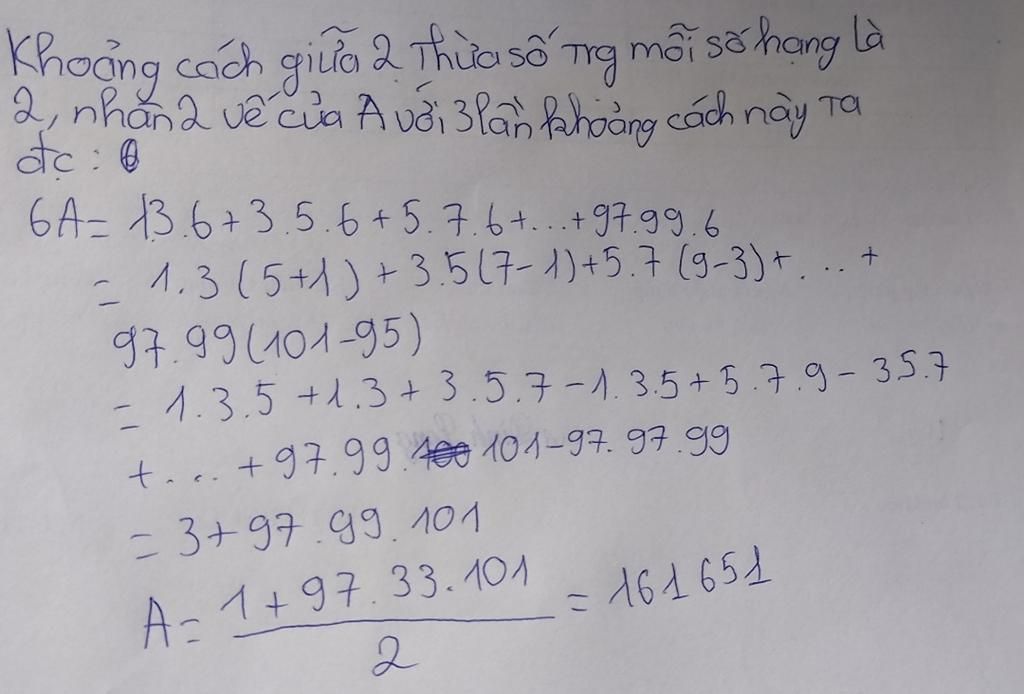 Khoảng cách giữa 2 Thừa số Trg mỗi số hạng là
2, nhân 2 vế của A với 3 lần khoảng cách này ta
đc :
6A = 1.3.6 + 3.5.6 + 5.7.6 + ... + 97.99.6
= 1.3(5+1) + 3.5(7-1) + 5.7(9-3) + ... +
97.99(101-95)
= 1.3.5 + 1.3 + 3.5.7 - 1.3.5 + 5.7.9 - 3.5.7
+ ... + 97.99.101 - 97.97.99
= 3 + 97.99.101
A = \frac{1 + 97.33.101}{2} = 161651